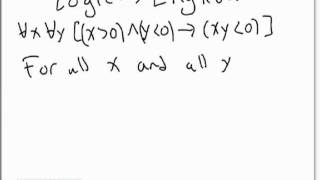 Logic → English
∀x∀y [(x>0)∧(y<0)→(xy<0)]
For all x and all y